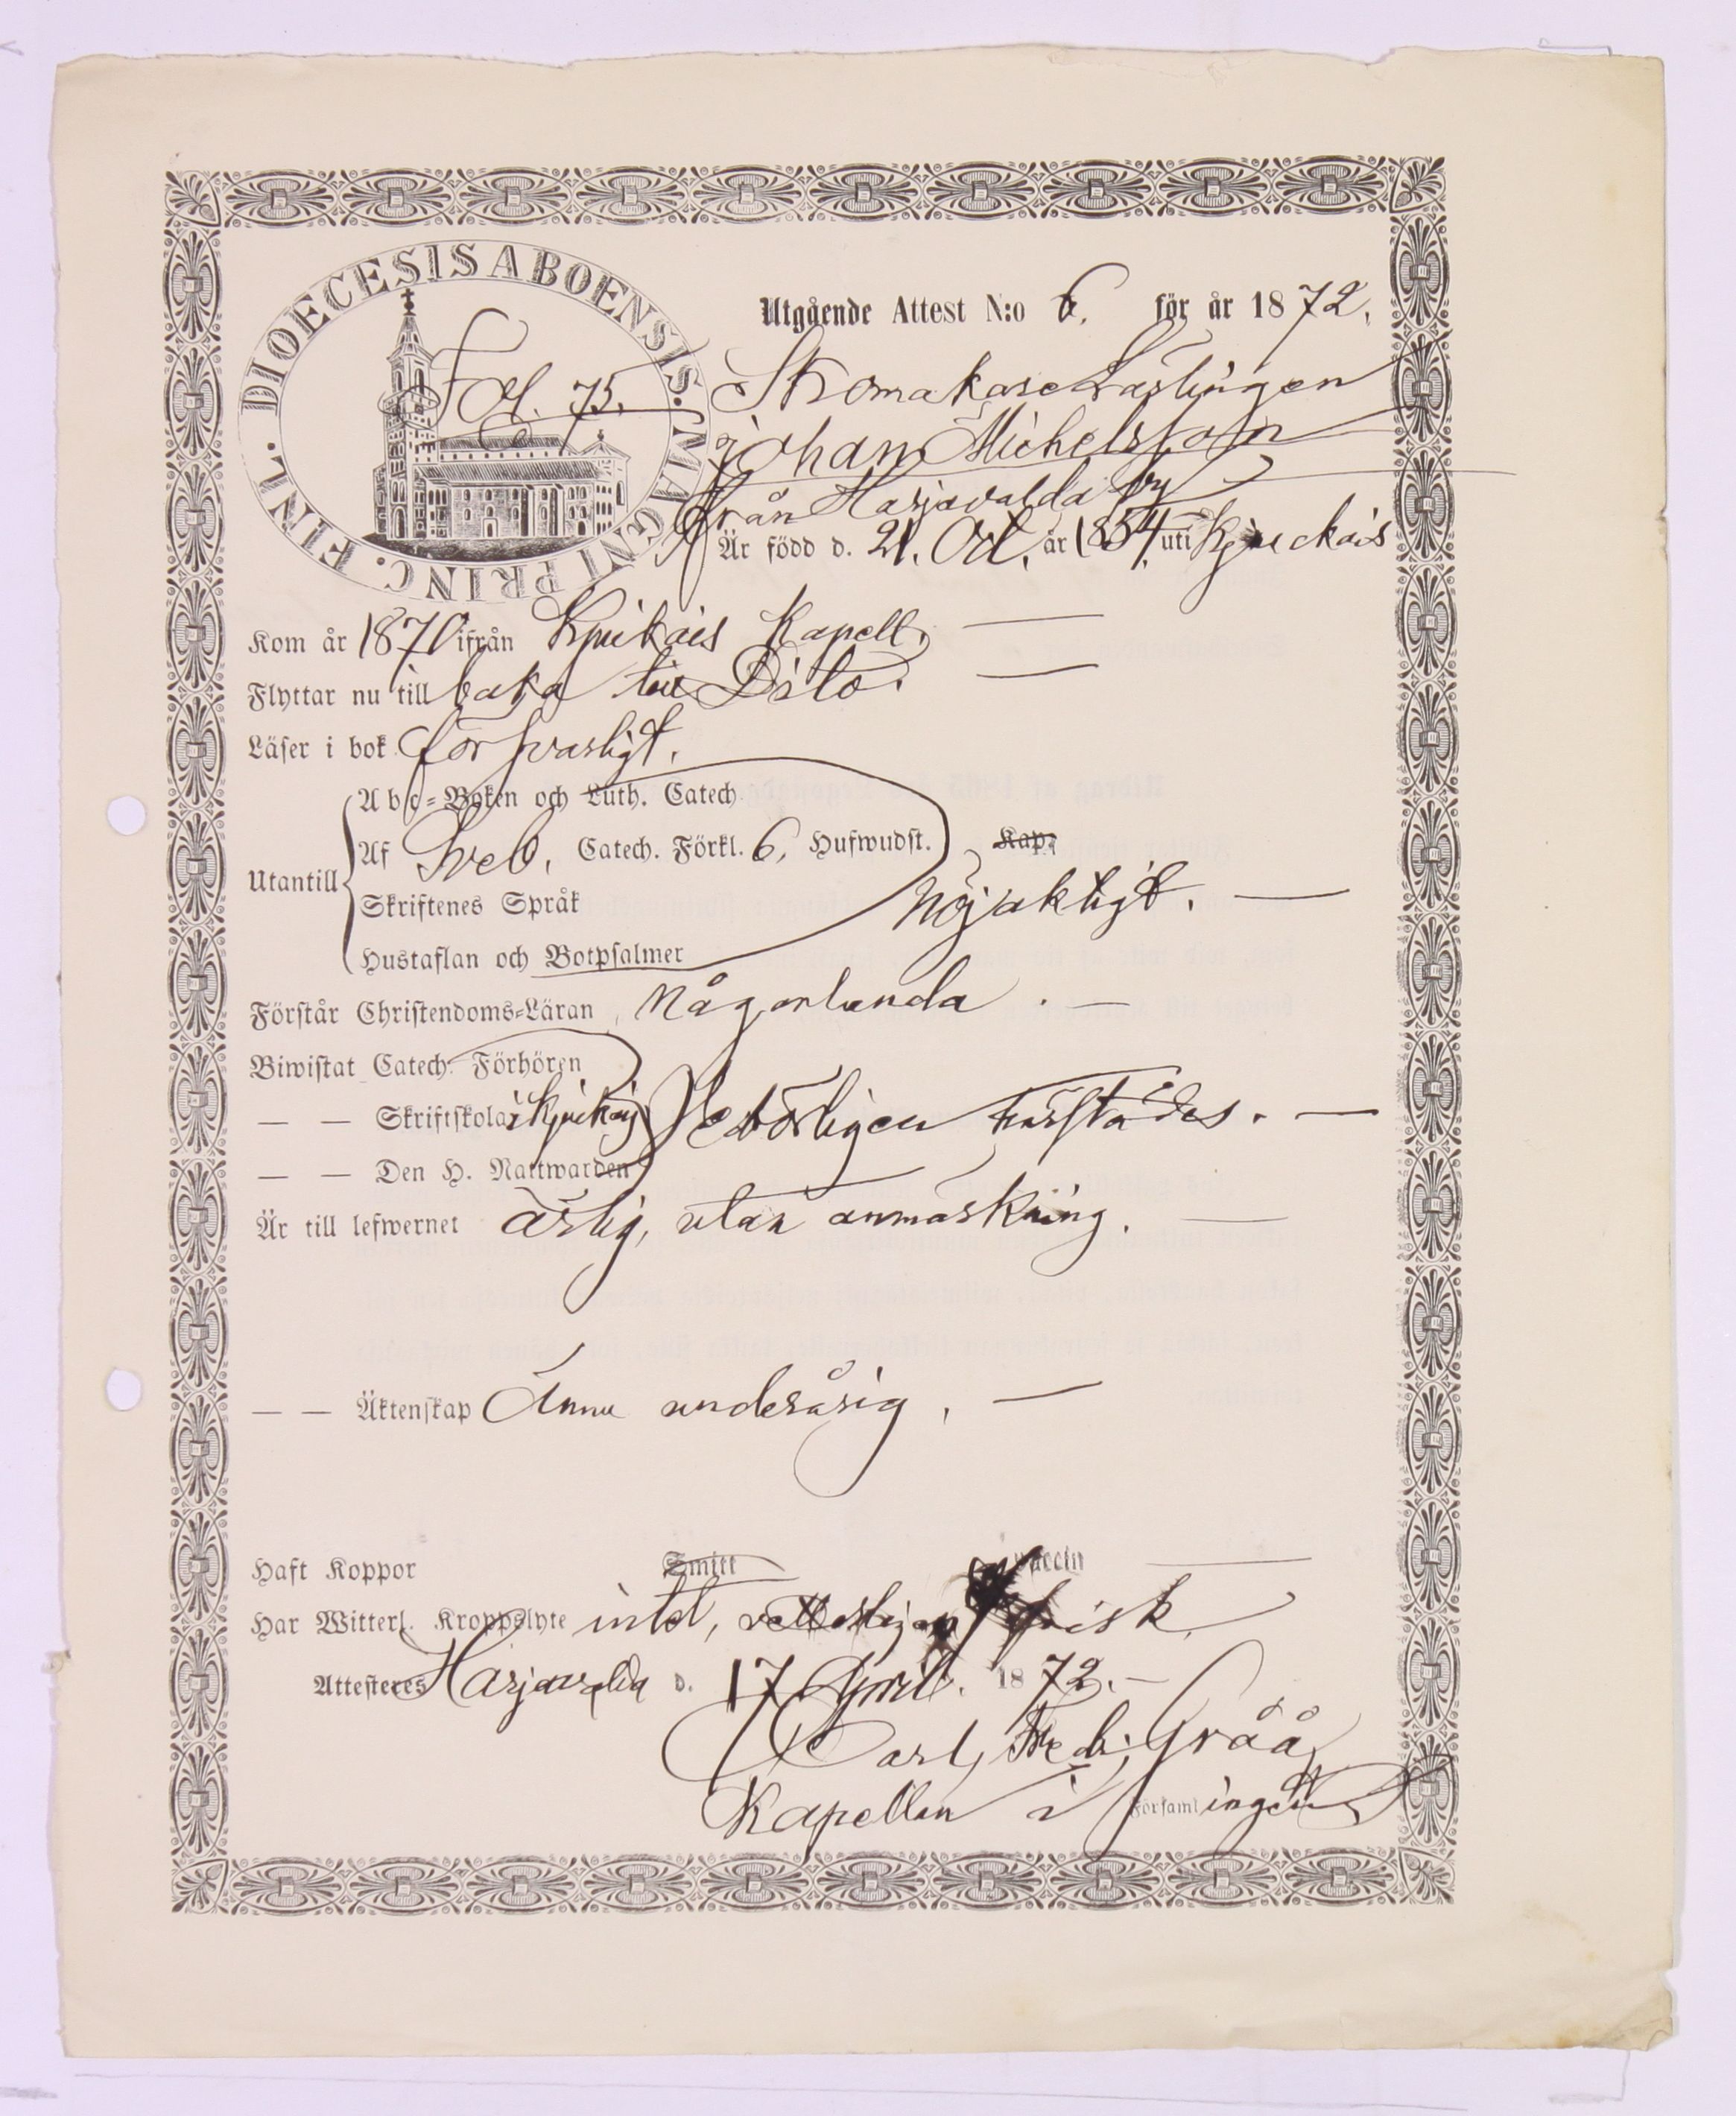 DIOECESIS ABOENSIS. MAGNI PRINC. FINL.
Fol. 75.
Utgående Attest N:o 6. för år 1872.
Skomakare Lärlingen
Johan Michelsson
från Harjavalda by
Är född d. 21. Oct. år 1854. uti Kjuckais
Kom år 1870 ifrån Kjuikais Kapell.
Flyttar nu till baka till Dito.
Läser i bok försvarligt.
Utantill
Abc-Boken och Luth. Catech.
Af Sveb. Catech. Förkl. 6, Hufwudst. Kap.
Skriftenes Språk
nöjaktigt.
Hustaflan och Botpsalmer
Förstår Christendoms-Läran någorlunda.
Biwistat Catech. Förhören
— — Skriftskola i Kjuikais behörigen härstädes.
— — Den H. Nattwarden
Är till lefwernet ärlig, utan anmärkning.
— — Äktenskap Ännu underårig.
Haft Koppor Smitt vaccin
Har Witterl. Kroppslyte intet, frisk.
Attesteres Harjavalda d. 17 April. 1872.
Carl Fredr. Gråå
Kapellan i Församlingen